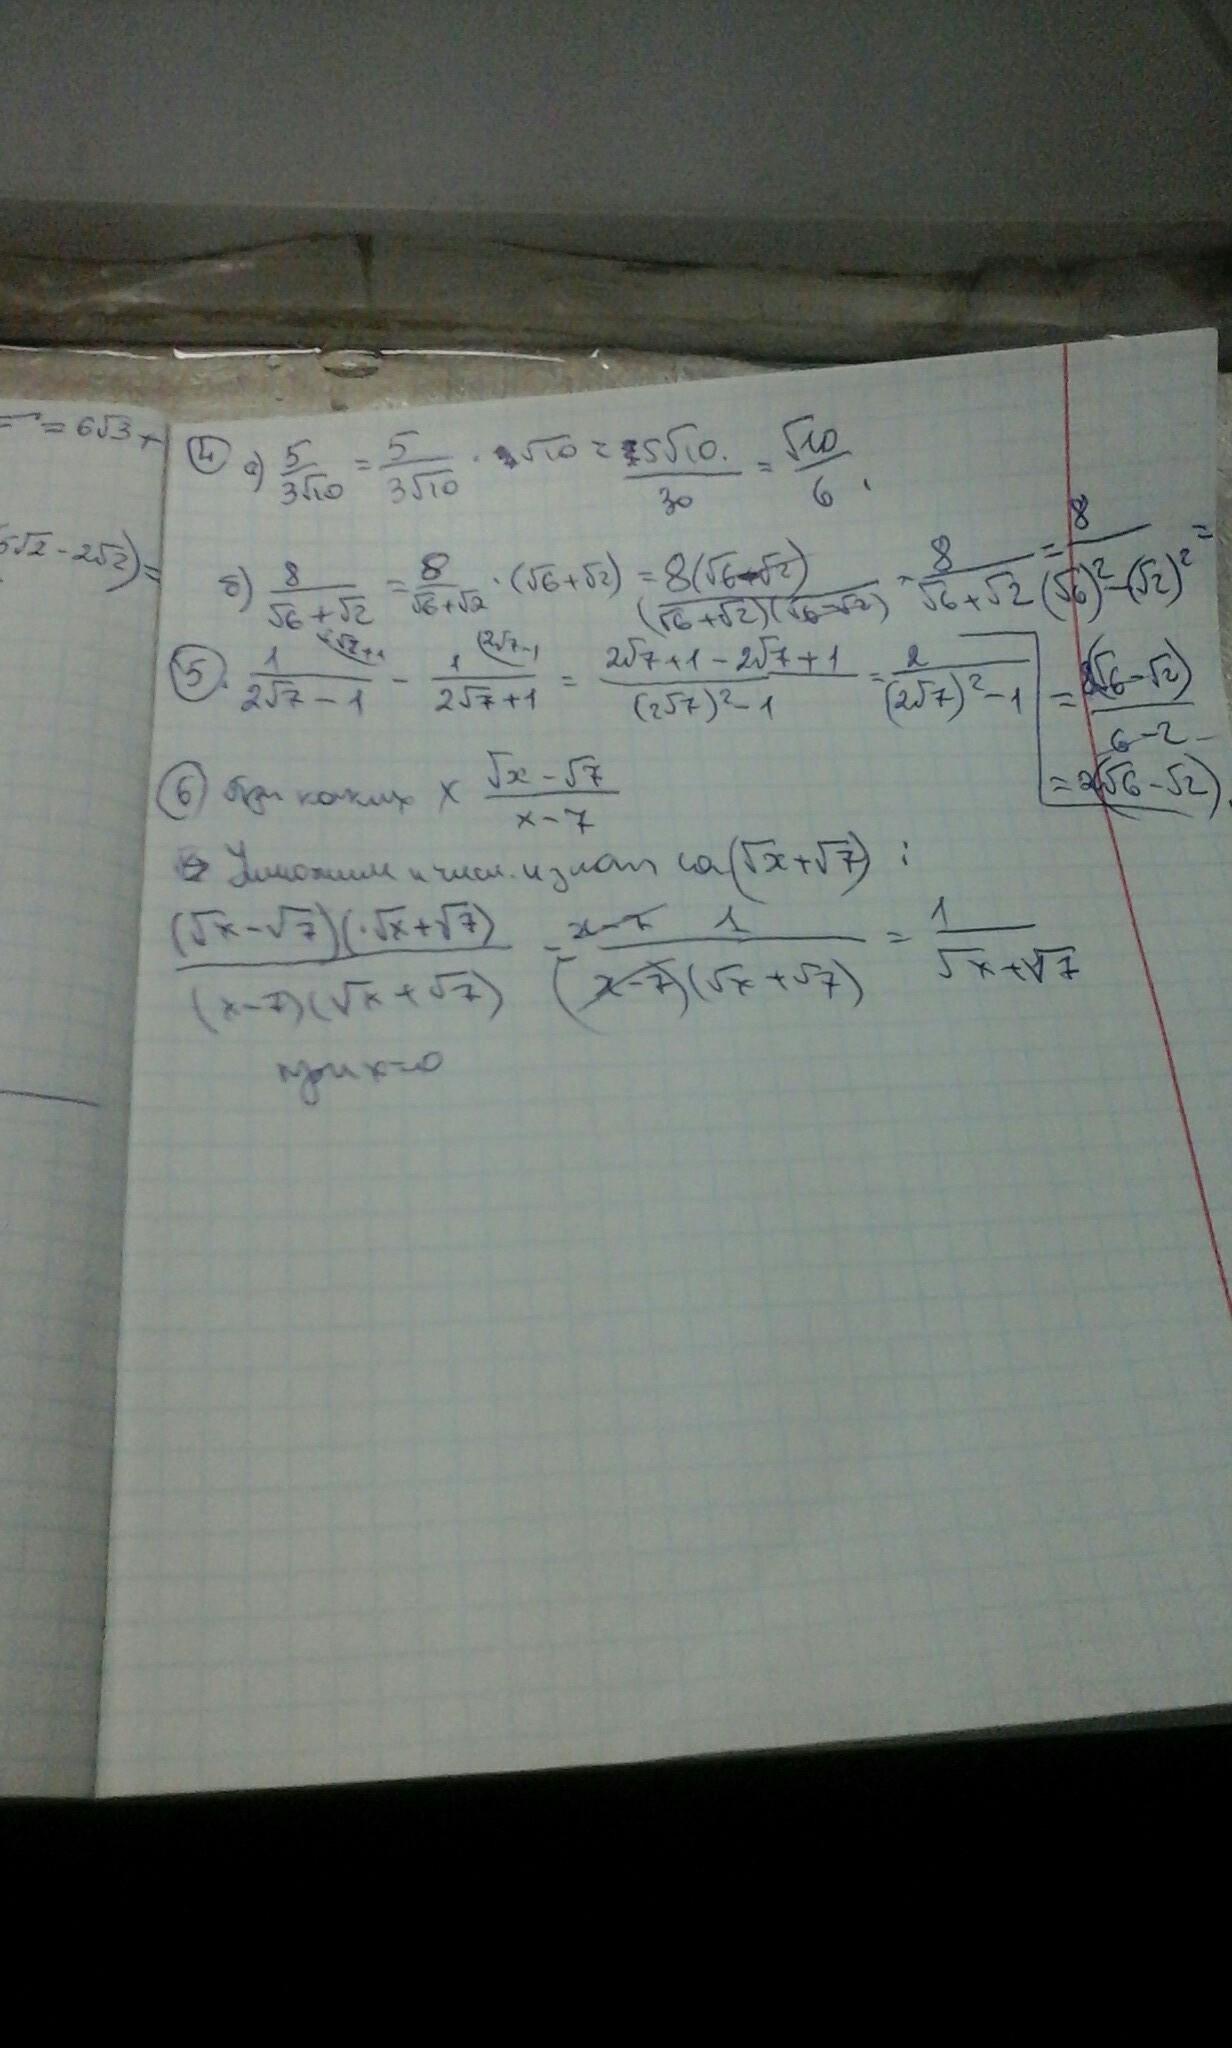 = 6√3 +
5√2 - 2√2) =
④ а) 5/(3√10) = 5/(3√10) · √10 = 5√10/30 = √10/6.
б) 8/(√6 + √2) = 8/(√6 + √2) · (√6 + √2) = 8(√6 - √2)/((√6 + √2)(√6 - √2)) = 8/(√6 + √2 (√6)² - (√2)²) =
= 2(√6 - √2)/(6 - 2)
= 2(√6 - √2).
⑤. 1/(2√7 - 1) - 1/(2√7 + 1) = (2√7 + 1 - 2√7 + 1)/((2√7)² - 1) = 2/((2√7)² - 1)
⑥ При каких x (√x - √7)/(x - 7)
Умножим и числ. и знам на (√x + √7) :
(√x - √7)(√x + √7)/((x - 7)(√x + √7)) = x - 7 1/((x - 7)(√x + √7)) = 1/(√x + √7)
при x = 0